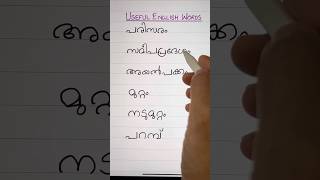 USEFUL ENGLISH WORDS
പരിസരം
സമീപപ്രദേശം
അയൽപക്കം
മുറ്റം
നടുമുറ്റം
പറമ്പ്